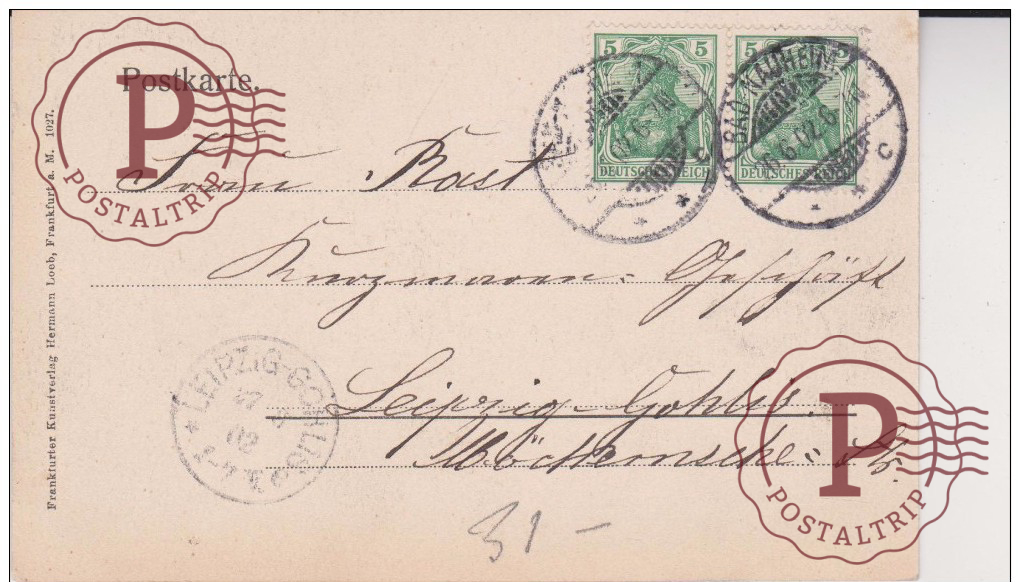 Postkarte.
5 5
5 5
DEUTSCHES REICH
DEUTSCHES REICH
BAD NAUHEIM
6.02.
C
C
Rast
Kurzwaren-Geschäft
Leipzig-Gohlis.
Möckernsche
LEIPZIG-GOHLIS
02
31 –
Frankfurter Kunstverlag Hermann Loeb, Frankfurt a. M. 1027.
P
POSTALTRIP
P
POSTALTRIP